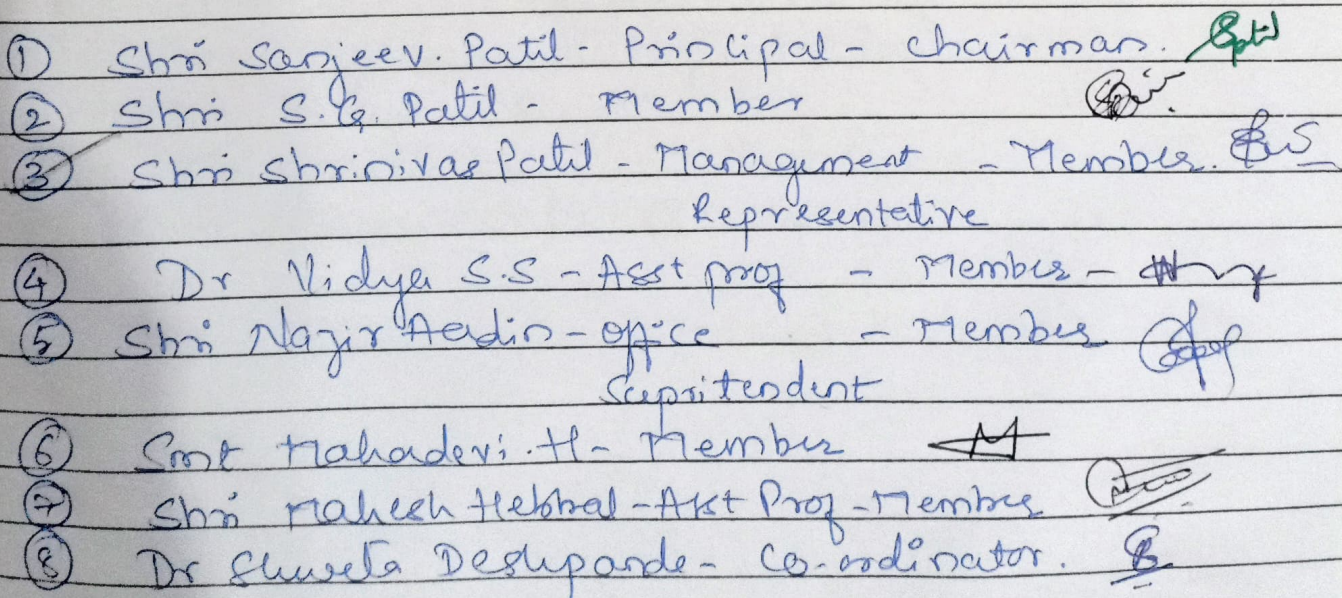 ① Shri Sanjeev. Patil - Principal - Chairman.
② Shri S.G. Patil - Member
③ Shri Shrinivas Patil - Management - Member.
Representative
④ Dr Vidya S.S - Asst prof - Member -
⑤ Shri Nazir Aedin - office - Member
Supritendent
⑥ Smt Mahadevi. H - Member
⑦ Shri Mahesh Hebbal - Asst Prof - Member
⑧ Dr Shweta Deshpande - Co-ordinator.